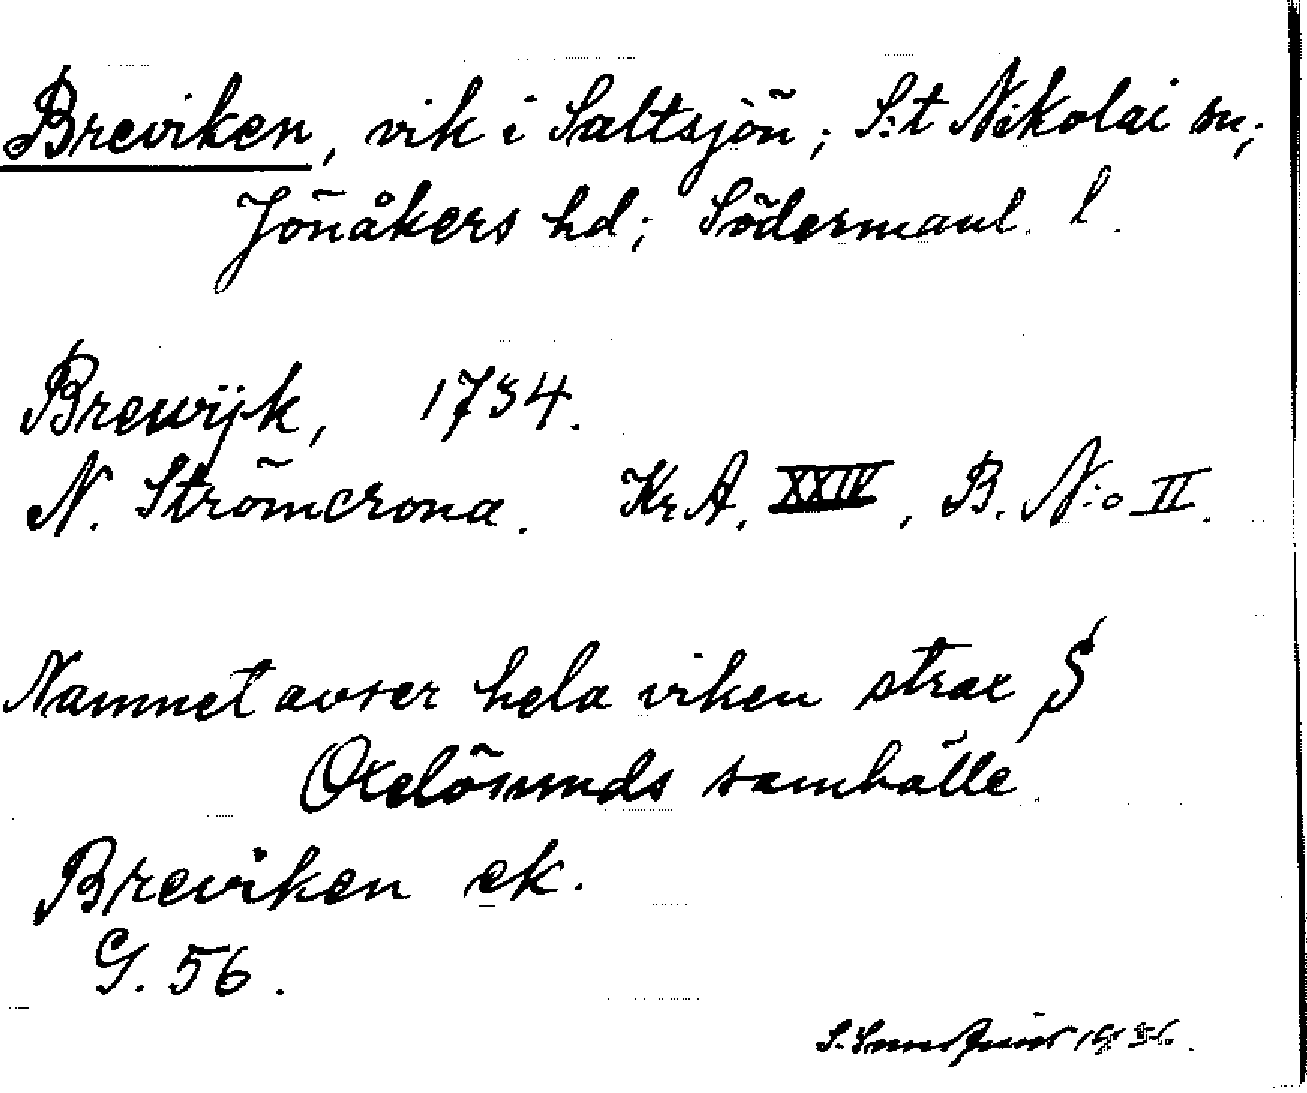 Breviken, vik i Saltsjön; S:t Nikolai sn;
Jönåkers hd; Södermanl. l.
Brewijk, 1734.
N. Strömcrona. Kr A. XXIV, B. N:o II.
Namnet avser hela viken strax S
Oxelösunds samhälle
Breviken ek.
G. 56.
S. 1936.